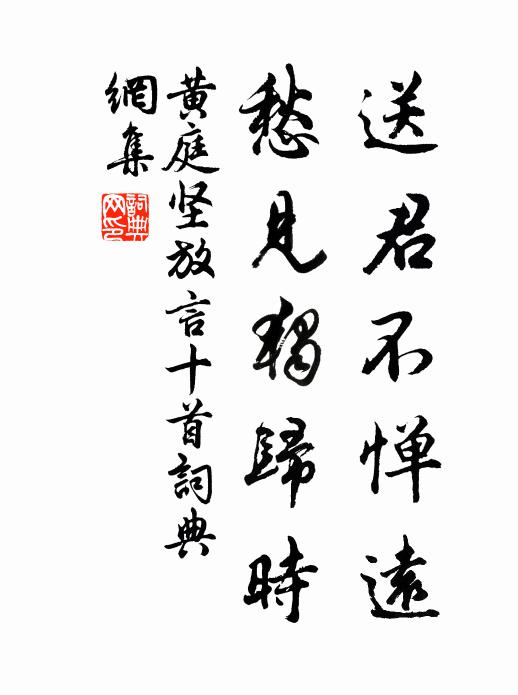 送君不惮遠
愁見獨歸時
黄庭坚放言十首詞典
網集
詞典
网印